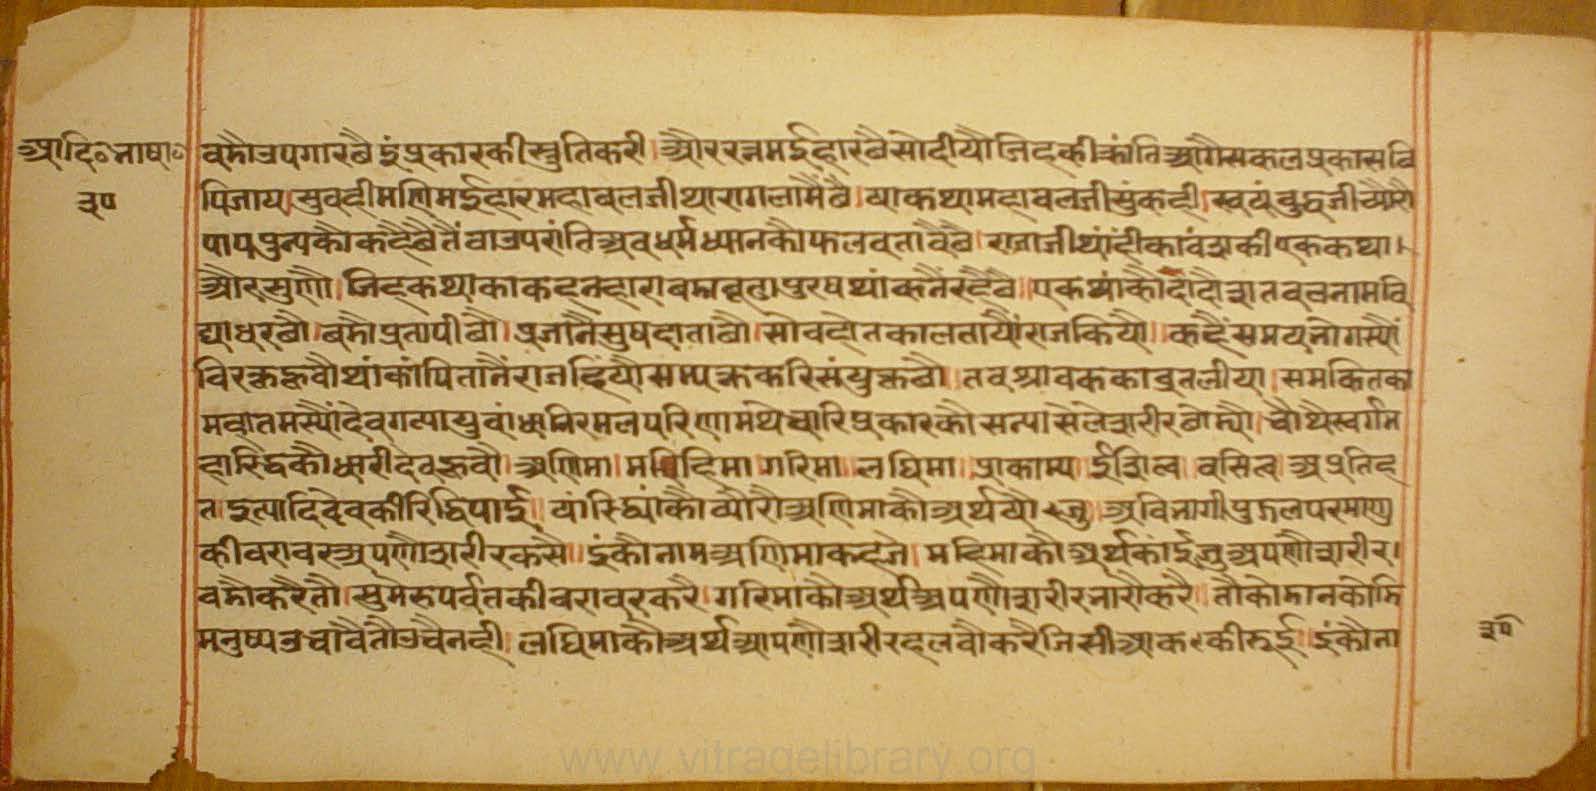 आदि०भाषा०
३५
बडौ उपगार छै इं प्रकार की स्तुति करी । और रत्नमई हार छै सो दीयौ जिह की क्रांति आगै सकल प्रकास छि
पि जाय । सुवही मणिमई हार महाबलजी था रा गला मैं छै । या कथा महाबलजी सुं कही । स्वयं बुद्धजी
पाप पुन्य कौ कहै छै तैं वा उपरांति अब धर्मध्यान कौ फल बतावै छै । राजाजी थां ही का वंश की एक कथा ।
और सुणौ । जिह कथा का कहनहारा बडा बूढा पुरष थां कनैं रहै छै । एक थां कौ दादौ शतबल नाम वि
द्याधर छौ । बडौ प्रतापी छौ । प्रजा नैं सुषदाता छौ । सो बहोत काल तायौं राज कियौ । कहैं समय भोगस्यौं
विरक्त हूवौ थां का पिता नैं राज दियौ सम्यक्त करि संयुक्त छौ । तब श्रावक का व्रत लीया । समकित का
मवातमस्यौं देवगत्यायु बांध्या निरमल परिणाम थे च्यारि प्रकार कौ सन्यास ले शरीर छोड्यौ । चौथै स्वर्ग म
हारिद्धि कौ धारी देव हूवौ । अणिमा । महिमा । गरिमा । लघिमा । प्राकाम्य । ईशित्व । वसित्व । अप्रतिह
त । इत्यादि देव की रिद्धि पाई । यां रिद्ध्यां कौ व्यौरौ अणिमा कौ अर्थ यौ छै जु । अविभागी पुद्गल परमाणु
की बराबर अपणौ शरीर कसै । इं कौ नाम अणिमा कहजे । महिमा कौ अर्थ कांई जु अपणौ शरीर ।
बडौ करै तौ । सुमेरु पर्वत की बराबर करै । गरिमा कौ अर्थ अपणौ शरीर भारौ करै । तौ कोडान कोडि
मनुष्य उचावै तौ उचै नही । लघिमा कौ अर्थ आपणौ शरीर हलवौ करै जिसी आक की रूई । इं कौ ना
३५
www.vitragelibrary.org